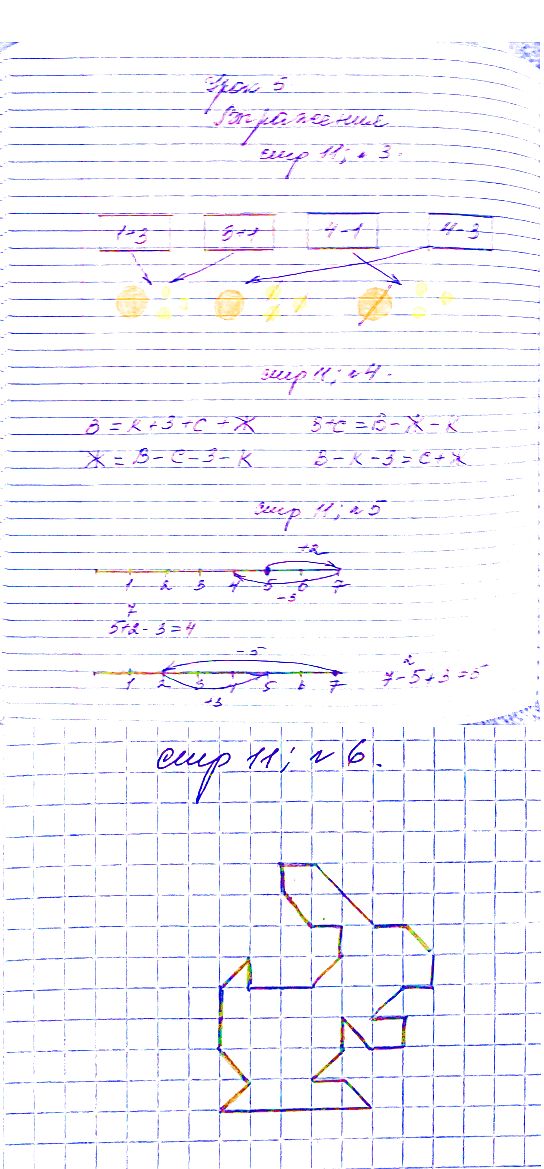 Урок 5
Выражения
стр 11; №3.
1+3 3+1 4-1 4-3
стр 11; №4.
В=К+З+С+Ж З+С=В-Ж-К
Ж=В-С-З-К В-К-З=С+Ж
стр 11; №5
+2
1 2 3 4 5 6 7
-3
7
5+2-3=4
-5
1 2 3 4 5 6 7
+3
2
7-5+3=5
стр 11; №6.